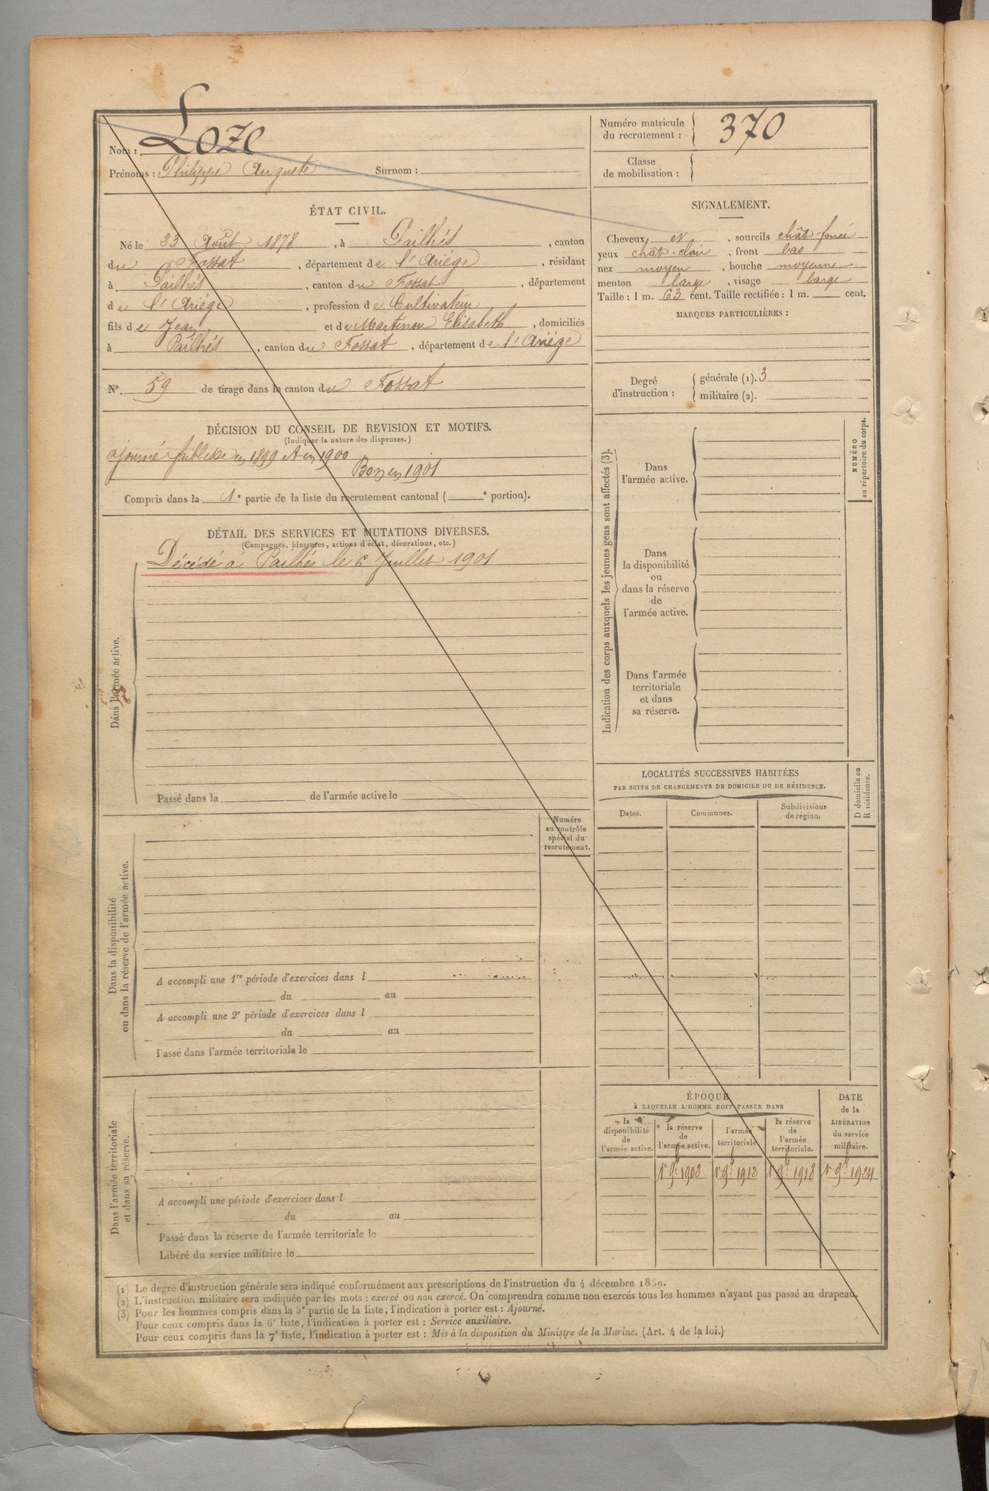 Nom : Loze
Prénoms : Philippe Auguste Surnom :
Numéro matricule
du recrutement : 370
Classe
de mobilisation :
ÉTAT CIVIL.
Né le 23 Août 1878, à Pailhés, canton
du Fossat, département de l'Ariége, résidant
à Pailhés, canton du Fossat, département
de l'Ariége, profession de Cultivateur
fils de Jean et de Martineu Elisabeth, domiciliés
à Pailhés, canton du Fossat, département de l'Ariége
N° 59 de tirage dans le canton du Fossat
SIGNALEMENT.
Cheveux et, sourcils chât. foncé
yeux chât. clair, front bas
nez moyen, bouche moyenne
menton large, visage large
Taille : 1 m. 63 cent. Taille rectifiée : 1 m. cent.
MARQUES PARTICULIÈRES :
Degré
d'instruction :
générale (1). 3
militaire (2).
DÉCISION DU CONSEIL DE REVISION ET MOTIFS.
(Indiquer la nature des dispenses.)
ajourné faiblesse en 1899 et en 1900
Bon en 1901
Compris dans la 1e partie de la liste du recrutement cantonal ( e portion).
DÉTAIL DES SERVICES ET MUTATIONS DIVERSES.
(Campagnes, blessures, actions d'éclat, décorations, etc.)
Décédé à Pailhés le 6 Juillet 1901
Dans l'armée active.
Passé dans la de l'armée active le
Indication des corps auxquels les jeunes gens sont affectés (3).
Dans
l'armée active.
Dans
la disponibilité
ou
dans la réserve
de
l'armée active.
Dans l'armée
territoriale
et dans
sa réserve.
NUMÉRO
au répertoire du corps.
LOCALITÉS SUCCESSIVES HABITÉES
PAR SUITE DE CHANGEMENTS DE DOMICILE OU DE RÉSIDENCE.
Dates.
Communes.
Subdivisions
de région.
D domicile ou
R résidence.
Numéro
au contrôle
spécial du
recrutement.
Dans la disponibilité
ou dans la réserve de l'armée active.
A accompli une 1re période d'exercices dans l
du au
A accompli une 2e période d'exercices dans l
du au
Passé dans l'armée territoriale le
Dans l'armée territoriale
et dans sa réserve.
A accompli une période d'exercices dans l
du au
Passé dans la réserve de l'armée territoriale le
Libéré du service militaire le
ÉPOQUE
À LAQUELLE L'HOMME DOIT PASSER DANS
la
disponibilité
de
l'armée active.
la réserve
de
l'armée active.
l'armée
territoriale.
la réserve
de
l'armée
territoriale.
DATE
de la
LIBÉRATION
du service
militaire.
1r 9bre 1902 1r 9bre 1912 1r 9bre 1918 1r 9bre 1924
(1) Le degré d'instruction générale sera indiqué conformément aux prescriptions de l'instruction du 4 décembre 1889.
(2) L'instruction militaire sera indiquée par les mots : exercé ou non exercé. On comprendra comme non exercés tous les hommes n'ayant pas passé au drapeau.
(3) Pour les hommes compris dans la 5e partie de la liste, l'indication à porter est : Ajourné.
Pour ceux compris dans la 6e liste, l'indication à porter est : Service auxiliaire.
Pour ceux compris dans la 7e liste, l'indication à porter est : Mis à la disposition du Ministre de la Marine. (Art. 4 de la loi.)